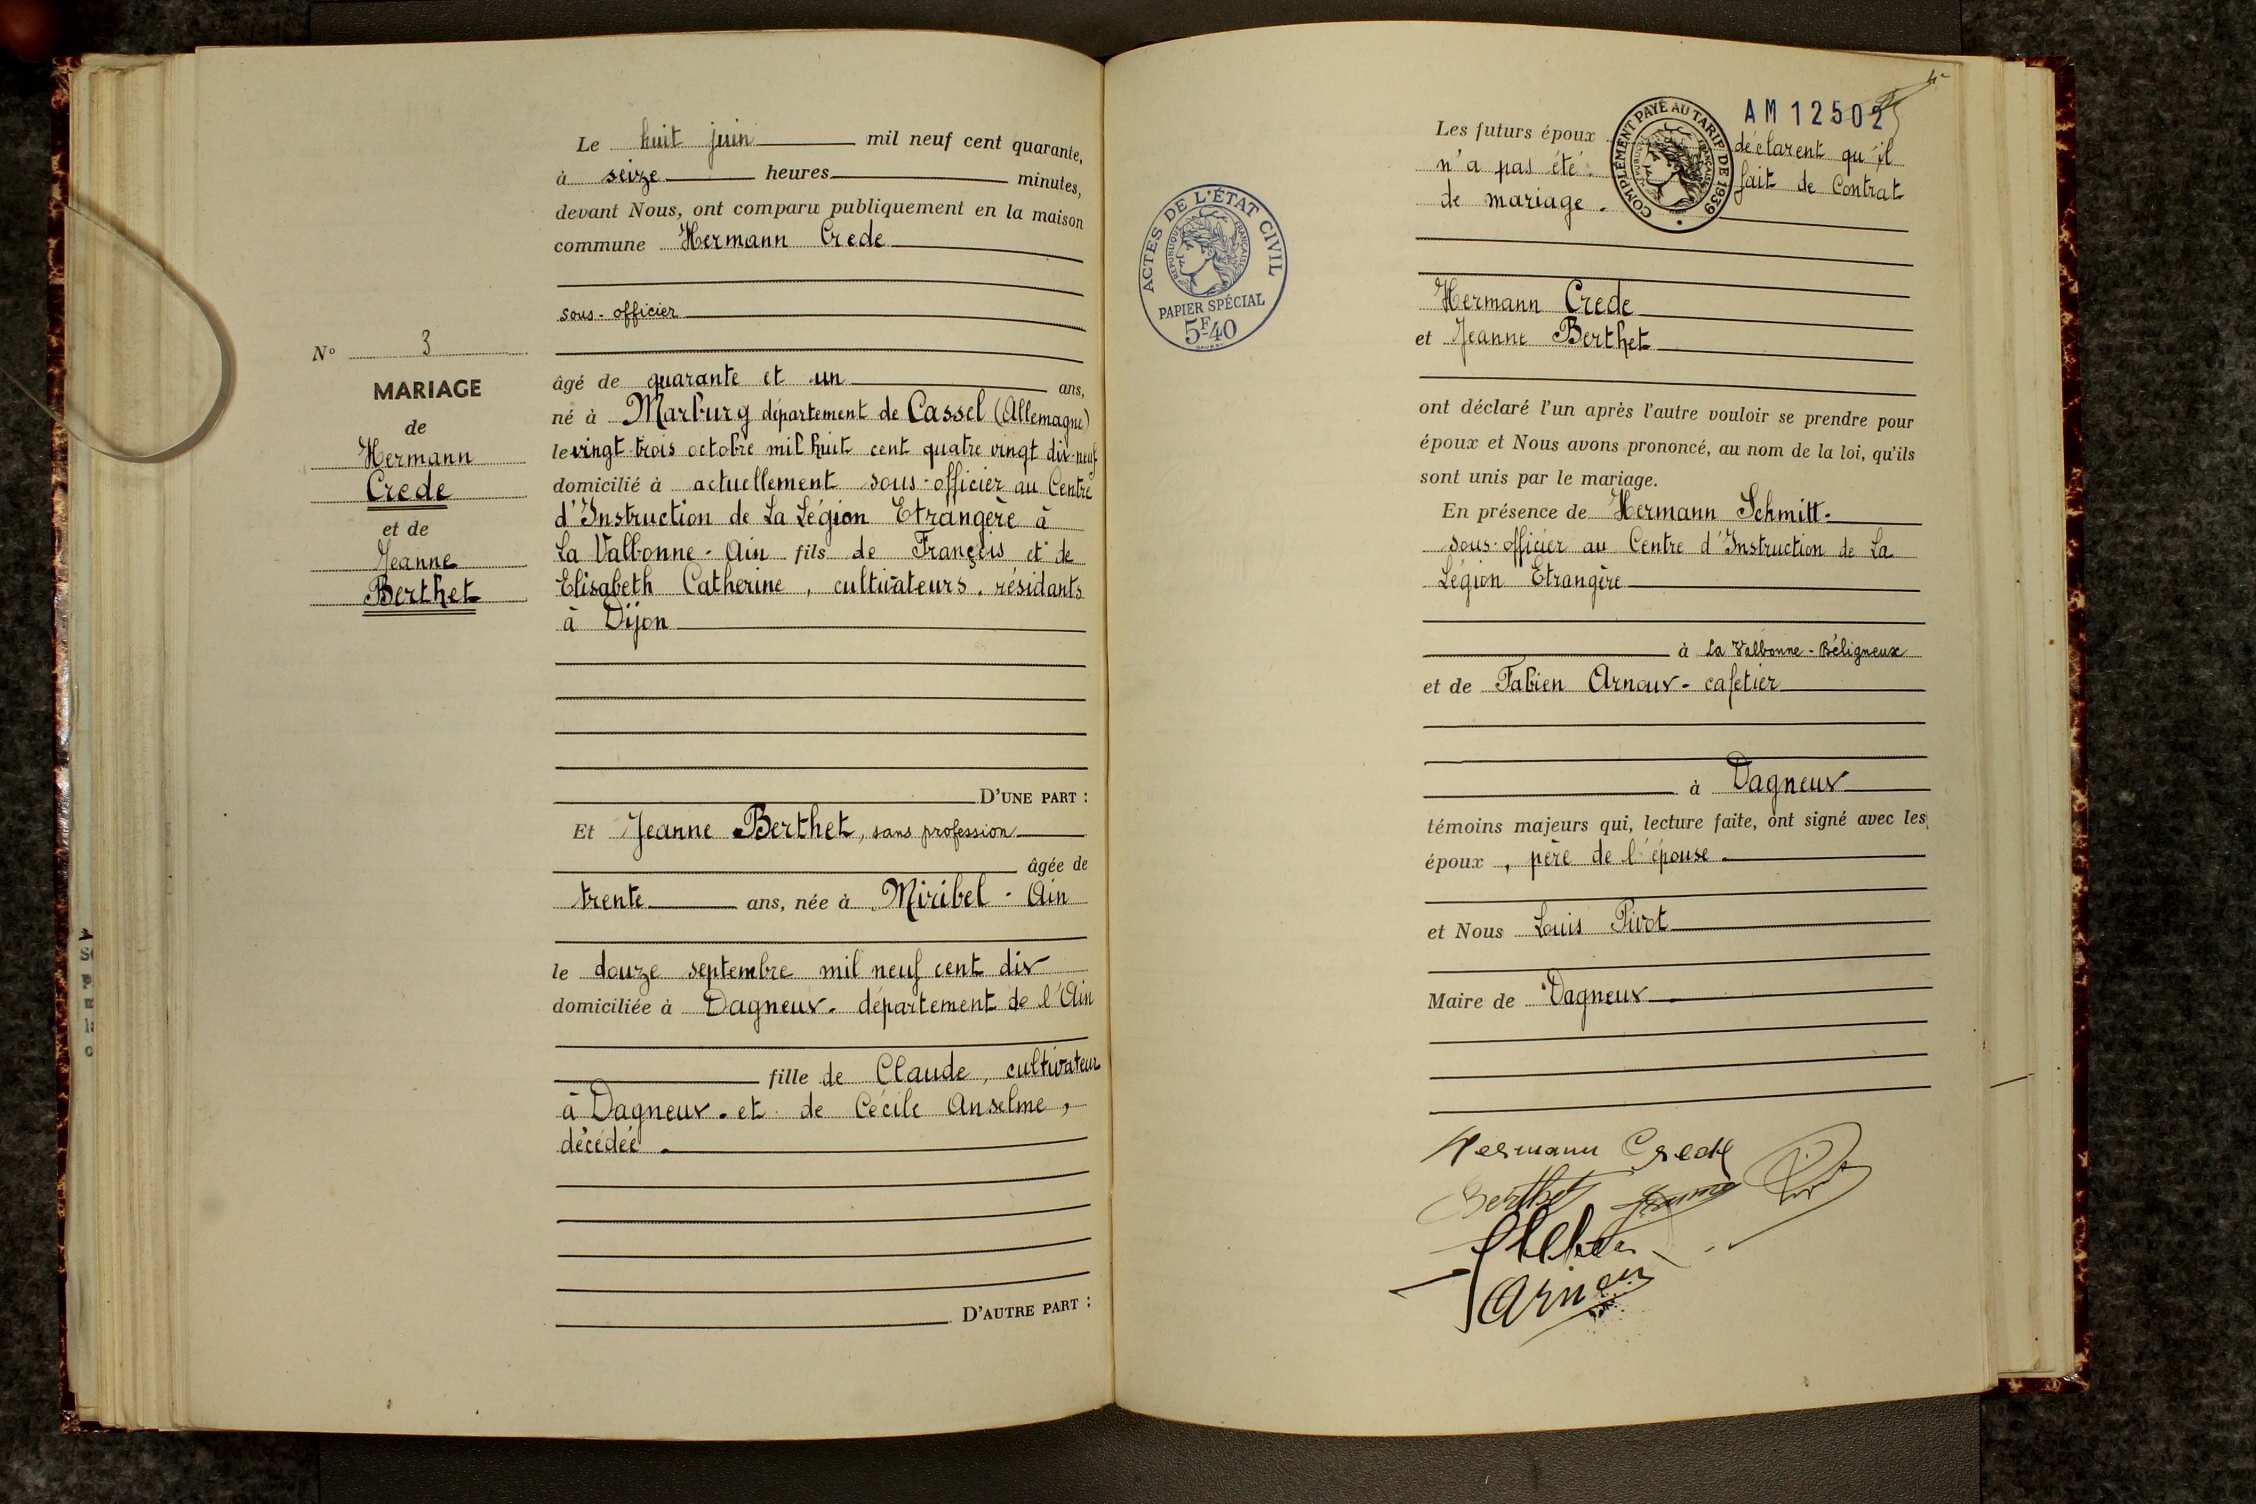 N° 3
MARIAGE
de
Hermann
Crede
et de
Jeanne
Berthet
Le huit juin mil neuf cent quarante,
à seize heures minutes,
devant Nous, ont comparu publiquement en la maison
commune Hermann Crede
sous-officier
âgé de quarante et un ans,
né à Marburg département de Cassel (Allemagne)
le vingt-trois octobre mil huit cent quatre vingt dix-neuf
domicilié à actuellement sous-officier au Centre
d'Instruction de La Légion Etrangère à
La Valbonne - Ain fils de François et de
Elisabeth Catherine, cultivateurs, résidants
à Dijon
D'UNE PART :
Et Jeanne Berthet, sans profession
âgée de
trente ans, née à Miribel - Ain
le douze septembre mil neuf cent dix
domiciliée à Dagneux - département de l'Ain
fille de Claude, cultivateur
à Dagneux - et de Cécile Anselme,
décédée.
D'AUTRE PART :
ACTES DE L'ÉTAT CIVIL
RÉPUBLIQUE FRANÇAISE
PAPIER SPÉCIAL
5F40
AM 12502
COMPLÉMENT PAYÉ AU TARIF DE 1939
RÉPUBLIQUE FRANÇAISE
Les futurs époux déclarent qu'il
n'a pas été fait de Contrat
de mariage.
Hermann Crede
et Jeanne Berthet
ont déclaré l'un après l'autre vouloir se prendre pour
époux et Nous avons prononcé, au nom de la loi, qu'ils
sont unis par le mariage.
En présence de Hermann Schmitt -
sous-officier au Centre d'Instruction de La
Légion Etrangère
à La Valbonne - Béligneux
et de Fabien Arnoux - cafetier
à Dagneux
témoins majeurs qui, lecture faite, ont signé avec les
époux, père de l'épouse.
et Nous Louis Pivot
Maire de Dagneux
Hermann Crede
Berthet
Arnoux